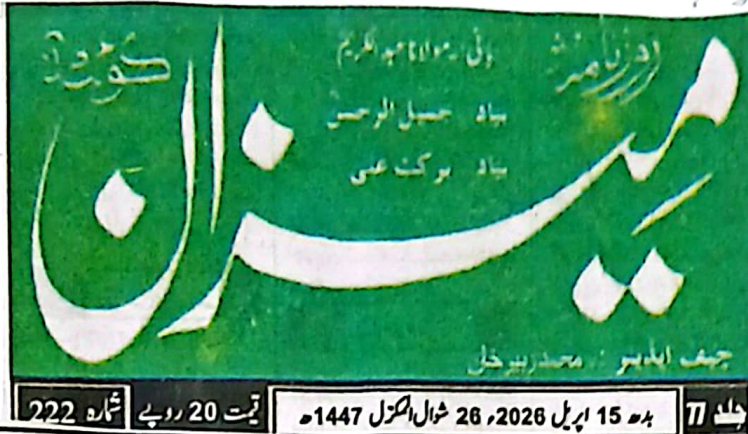 روزنامہ
میزان
کوئٹہ
بانی : مولانا عبدالکریم
بیاد جمیل الرحمن
بیاد برکت علی
چیف ایڈیٹر : محمد زبیر خان
جلد 77
بدھ 15 اپریل 2026ء 26 شوال المکرم 1447ھ
قیمت 20 روپے
شمارہ 222